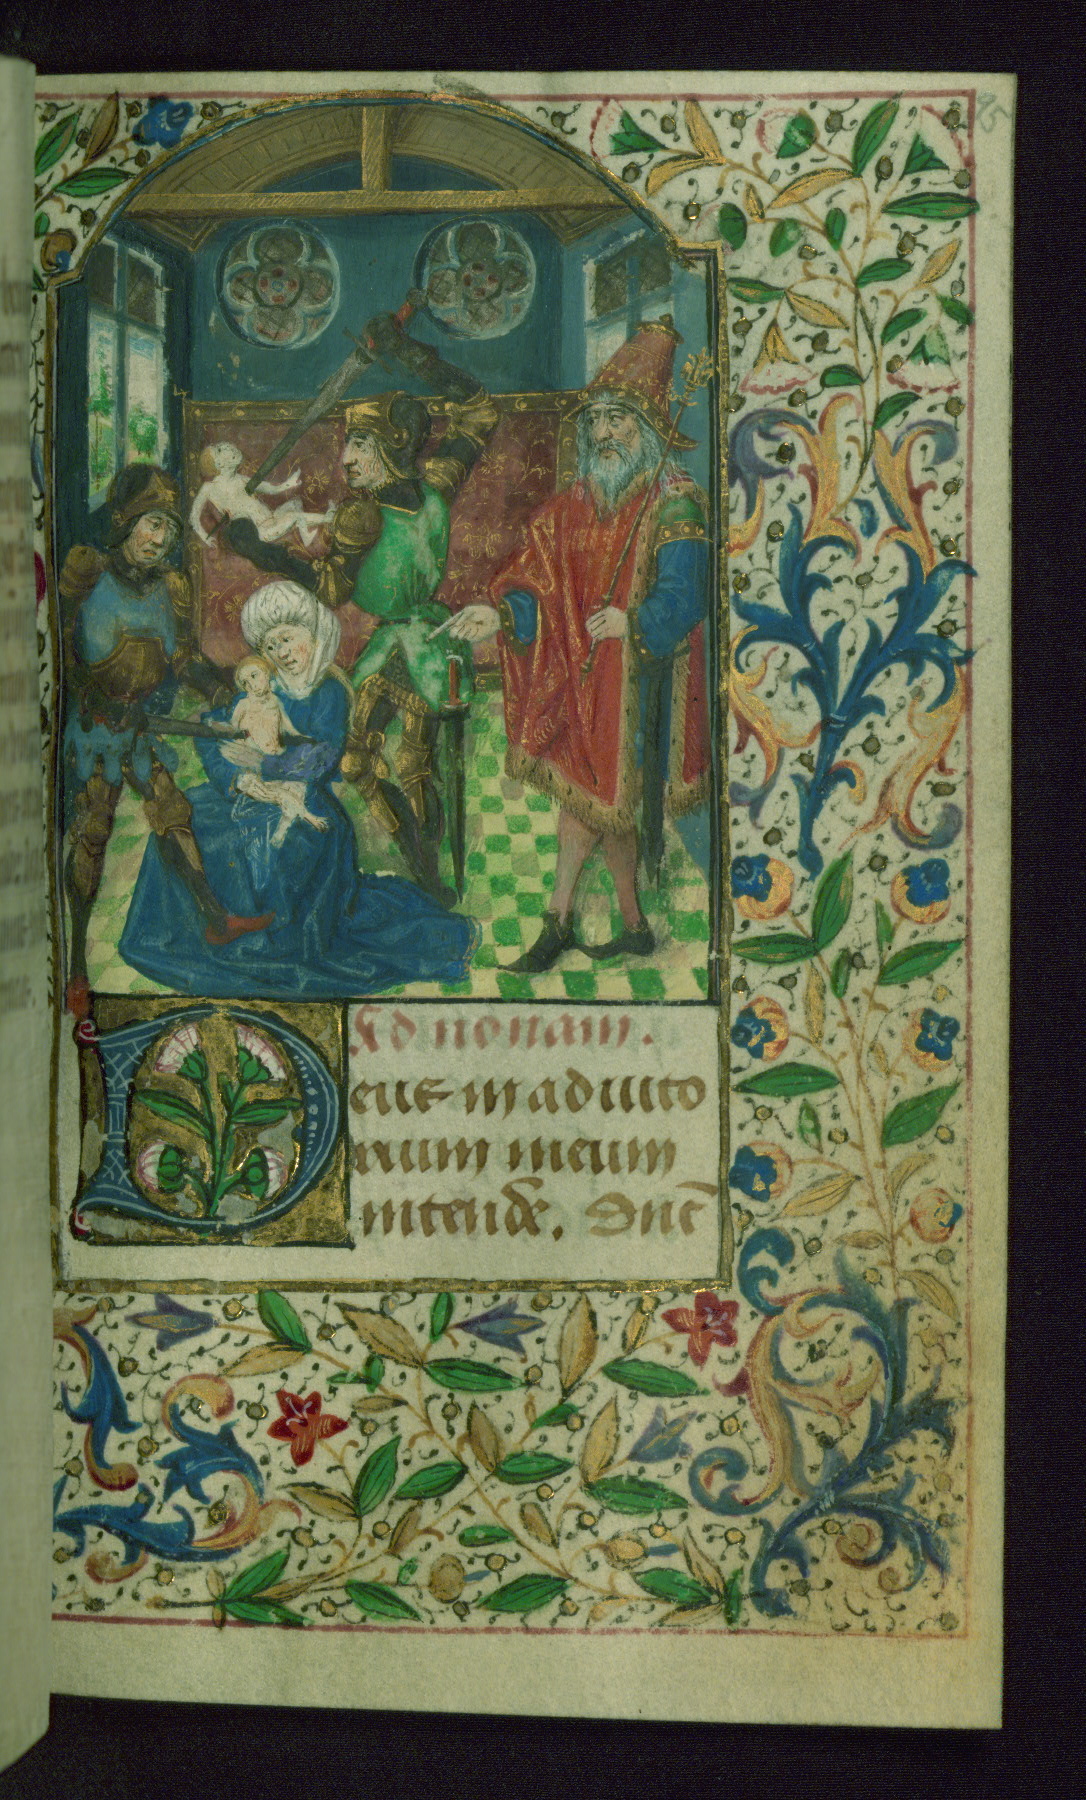 95
Ad nonam.
Deus in adiuto
rium meum
intende. Dne